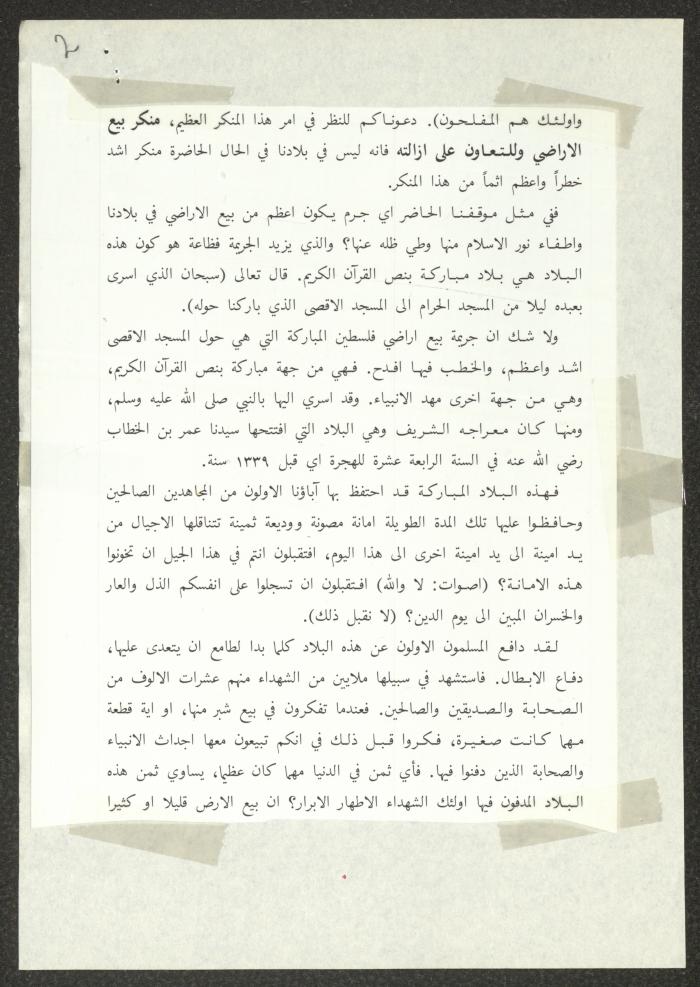 2
واولئك هم المفلحون). دعوناكم للنظر في امر هذا المنكر العظيم، منكر بيع
الاراضي وللتعاون على ازالته فانه ليس في بلادنا في الحال الحاضرة منكر اشد
خطراً واعظم اثماً من هذا المنكر.
ففي مثل موقفنا الحاضر اي جرم يكون اعظم من بيع الاراضي في بلادنا
واطفاء نور الاسلام منها وطي ظله عنها؟ والذي يزيد الجريمة فظاعة هو كون هذه
البلاد هي بلاد مباركة بنص القرآن الكريم. قال تعالى (سبحان الذي اسرى
بعبده ليلا من المسجد الحرام الى المسجد الاقصى الذي باركنا حوله).
ولا شك ان جريمة بيع اراضي فلسطين المباركة التي هي حول المسجد الاقصى
اشد واعظم، والخطب فيها افدح. فهي من جهة مباركة بنص القرآن الكريم،
وهي من جهة اخرى مهد الانبياء. وقد اسري اليها بالنبي صلى الله عليه وسلم،
ومنها كان معراجه الشريف وهي البلاد التي افتتحها سيدنا عمر بن الخطاب
رضي الله عنه في السنة الرابعة عشرة للهجرة اي قبل ١٣٣٩ سنة.
فهذه البلاد المباركة قد احتفظ بها آباؤنا الاولون من المجاهدين الصالحين
وحافظوا عليها تلك المدة الطويلة امانة مصونة ووديعة ثمينة تتناقلها الاجيال من
يد امينة الى يد امينة اخرى الى هذا اليوم، افتقبلون انتم في هذا الجيل ان تخونوا
هذه الامانة؟ (اصوات: لا والله) افتقبلون ان تسجلوا على انفسكم الذل والعار
والخسران المبين الى يوم الدين؟ (لا نقبل ذلك).
لقد دافع المسلمون الاولون عن هذه البلاد كلما بدا لطامع ان يتعدى عليها،
دفاع الابطال. فاستشهد في سبيلها ملايين من الشهداء منهم عشرات الالوف من
الصحابة والصديقين والصالحين. فعندما تفكرون في بيع شبر منها، او اية قطعة
مهما كانت صغيرة، فكروا قبل ذلك في انكم تبيعون معها اجداث الانبياء
والصحابة الذين دفنوا فيها. فأي ثمن في الدنيا مهما كان عظيما، يساوي ثمن هذه
البلاد المدفون فيها اولئك الشهداء الاطهار الابرار؟ ان بيع الارض قليلا او كثيرا